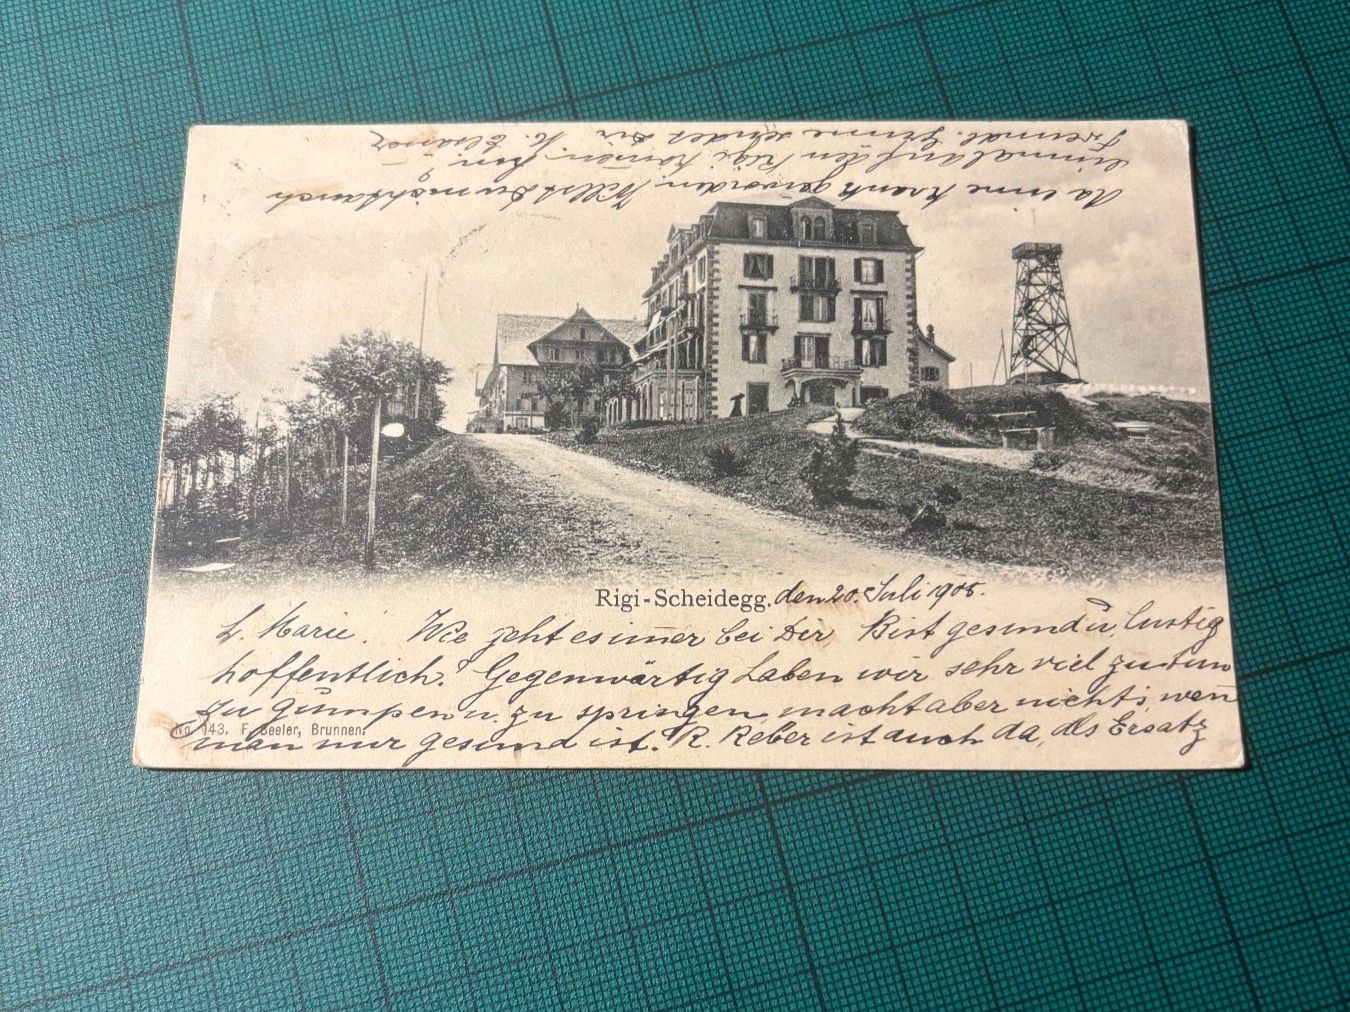 Rigi-Scheidegg. den 20. Juli 1905.
L. Marie! Wie geht es im̅er bei Dir Bist gesund u. lustig
hoffentlich? Gegenwärtig haben wir sehr viel zu tun
zu gumpen u. zu springen, macht aber nichts, wen̅
man nur gesund ist. R. Reber ist auch da, als Ersatz
No. 143. F. Beeler, Brunnen.
da eine krank geworden. Willst Du nicht auch
einmal auf den Rigi kommen.
Freundl. Grüsse sendet Dir